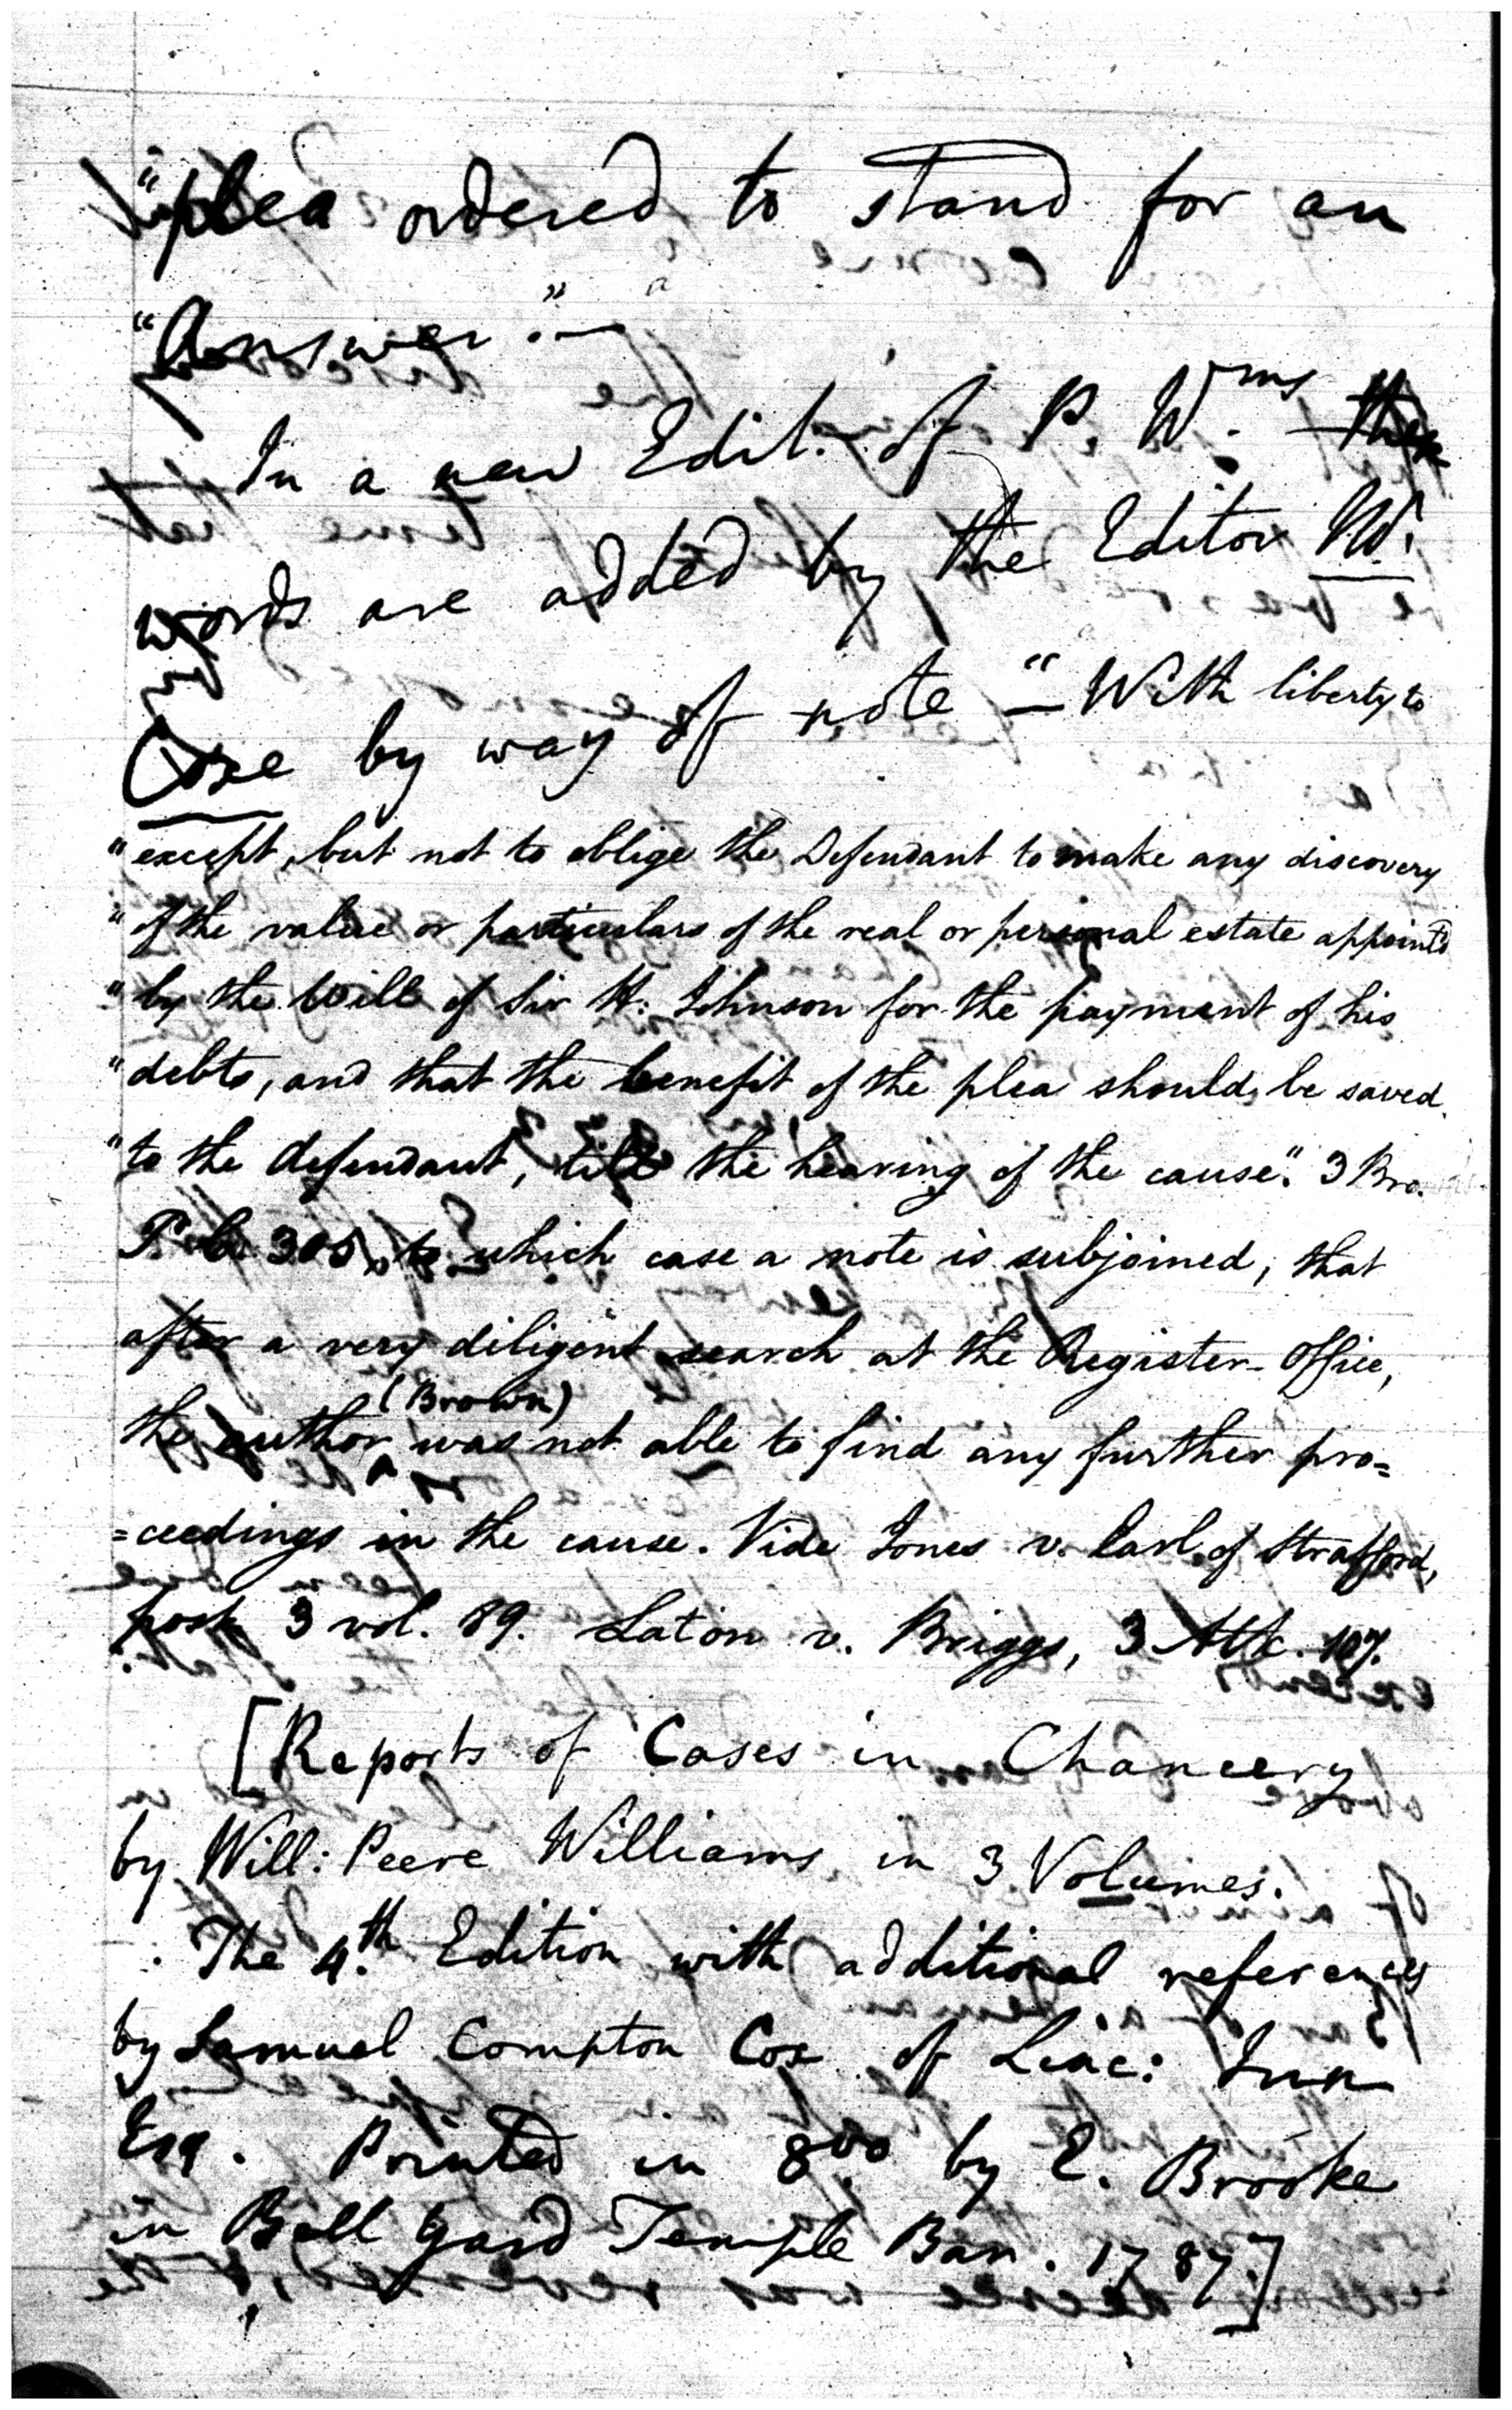 "plea ordered to stand for an
"Answer."—
In a new Edit. of P. Wms. these
words are added by the Editor Mr.
Cox by way of note — "With liberty to
"except, but not to oblige the Defendant to make any discovery
"of the value or particulars of the real or personal estate appointd
"by the Will of Sir H: Johnson for the payment of his
"debts, and that the benefit of the plea should be saved
"to the defendant, till the hearing of the cause". 3 Bro.
P. C. 305, to which case a note is subjoined, that
after a very diligent search at the Register-Office,
the author (Brown) was not able to find any further pro=
=ceedings in the cause. Vide Jones v. Earl of Strafford,
post 3 vol. 89. Laton v. Briggs, 3 Atk. 107.
[Reports of Cases in Chancery
by Will: Peere Williams in 3 Volumes.
The 4.th Edition with additional references
by Samuel Compton Cox of Linc: Inn
Esq. Printed in 8vo by E. Brooke
in Bell Yard Temple Bar. 1787.]